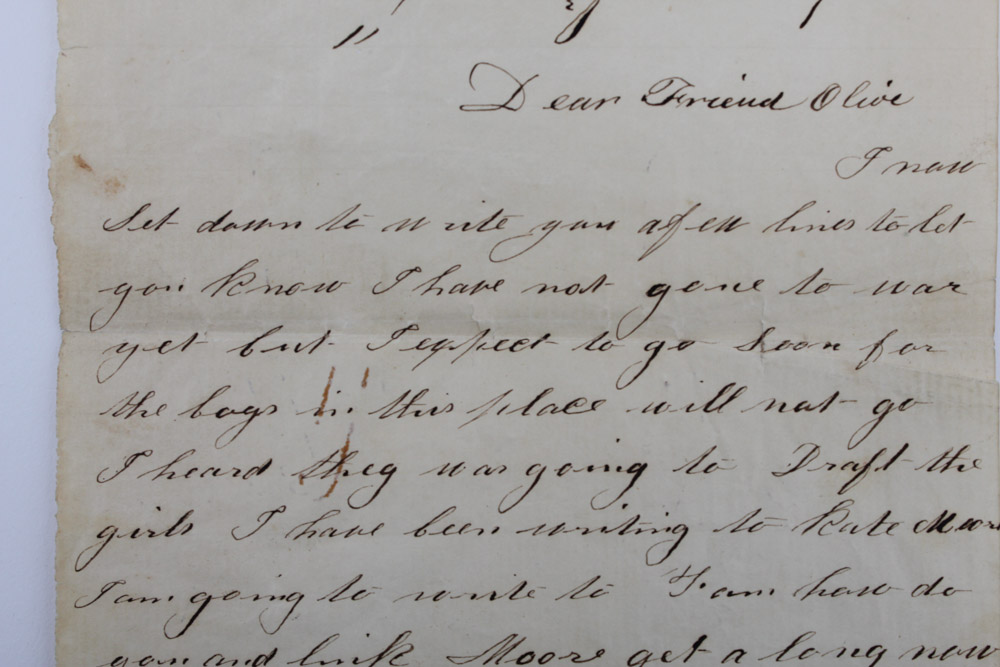 Dear Friend Olive
I now
Set down to write you afew lines to let
you know I have not gone to war
yet but I expect to go Soon for
the boys in this place will not go
I heard they was going to Draft the
girls I have been writing to Kate Moore
I am going to write to Fam how do
you and link Moore get a long now